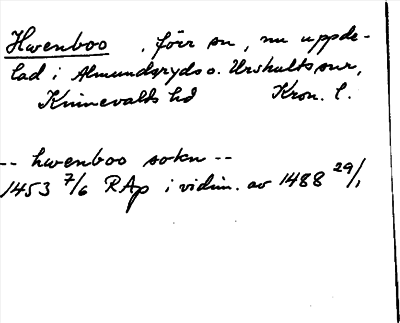 Hwenboo , förr sn, nu uppde-
lad i Almundsryds o. Urshults snr,
Kinnevalds hd Kron. l.
-- hwenboo sokn --
1453 7/6 RAp i vidim. av 1488 29/1